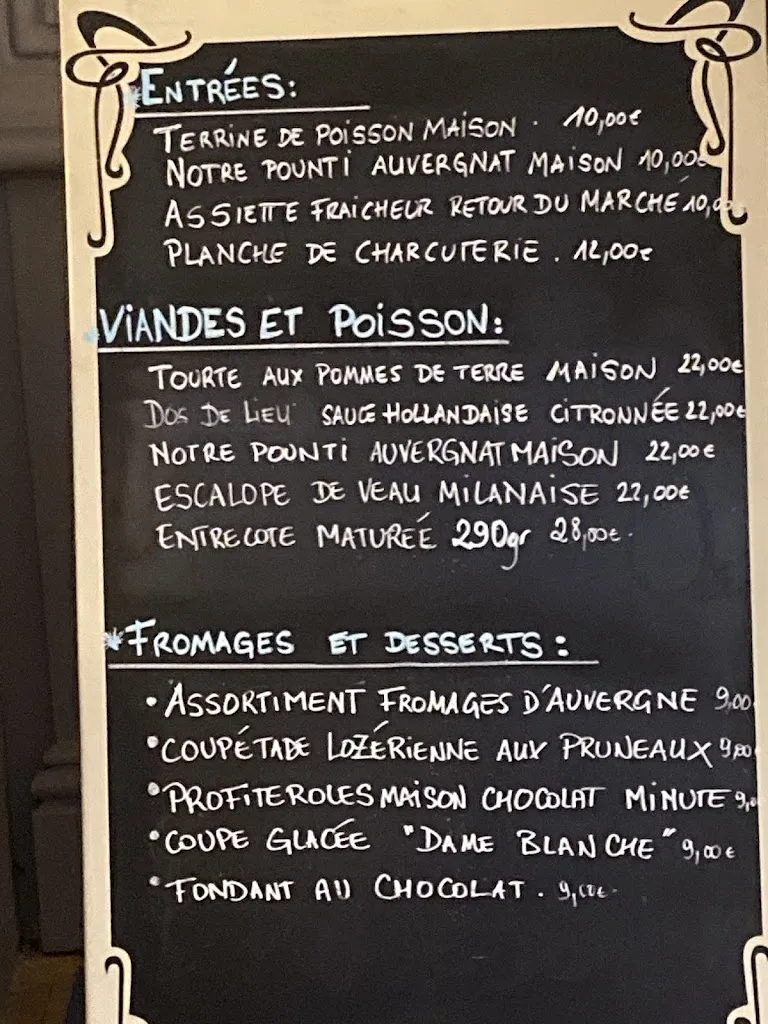 *ENTRÉES:
TERRINE DE POISSON MAISON . 10,00€
NOTRE POUNTI AUVERGNAT MAISON 10,00€
ASSIETTE FRAICHEUR RETOUR DU MARCHÉ 10,00
PLANCHE DE CHARCUTERIE . 12,00€
*VIANDES ET POISSON:
TOURTE AUX POMMES DE TERRE MAISON 22,00€
DOS DE LIEU SAUCE HOLLANDAISE CITRONNÉE 22,00€
NOTRE POUNTI AUVERGNAT MAISON 22,00€
ESCALOPE DE VEAU MILANAISE 22,00€
ENTRECOTE MATUREÉ 290gr 28,00€.
*FROMAGES ET DESSERTS:
• ASSORTIMENT FROMAGES D'AUVERGNE 9,00
• COUPÉTADE LOZÉRIENNE AUX PRUNEAUX 9,00
• PROFITEROLES MAISON CHOCOLAT MINUTE 9,0
• COUPE GLACÉE "DAME BLANCHE" 9,00€
• FONDANT AU CHOCOLAT . 9,00€.